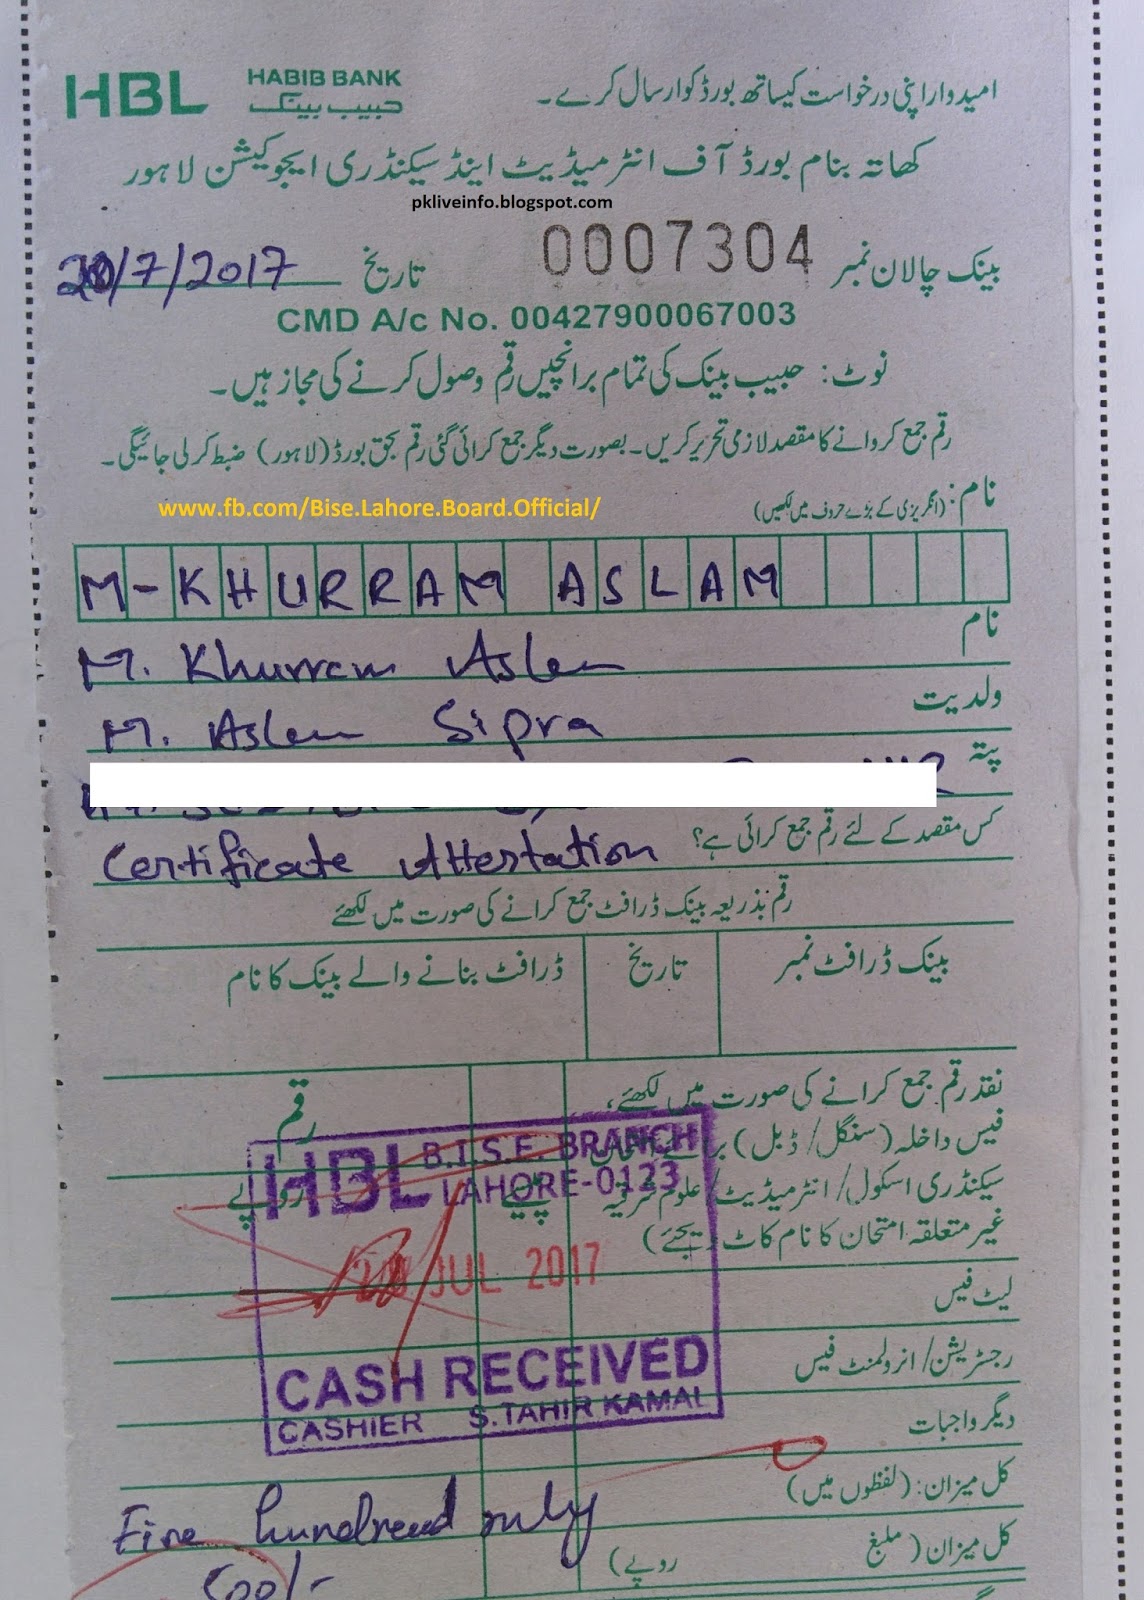 HBL HABIB BANK حبیب بینک
امیدوار اپنی درخواست کیساتھ بورڈ کو ارسال کرے۔
کھاتہ بنام بورڈ آف انٹرمیڈیٹ اینڈ سیکنڈری ایجوکیشن لاہور
pkliveinfo.blogspot.com
بینک چالان نمبر 0007304 تاریخ 20/7/2017
CMD A/c No. 00427900067003
نوٹ: حبیب بینک کی تمام برانچیں رقم وصول کرنے کی مجاز ہیں۔
رقم جمع کروانے کا مقصد لازمی تحریر کریں۔ بصورت دیگر جمع کرائی گئی رقم بحق بورڈ (لاہور) ضبط کر لی جائیگی۔
نام: (انگریزی کے بڑے حروف میں لکھیں)
www.fb.com/Bise.Lahore.Board.Official/
M-KHURRAM ASLAM
نام M. Khurram Aslam
ولدیت M. Aslam Sipra
پتہ
کس مقصد کے لئے رقم جمع کرائی ہے؟ Certificate Attestation
رقم بذریعہ بینک ڈرافٹ جمع کرانے کی صورت میں لکھئے
بینک ڈرافٹ نمبر تاریخ ڈرافٹ بنانے والے بینک کا نام
نقد رقم جمع کرانے کی صورت میں لکھئے، رقم
فیس داخلہ (سنگل/ڈبل)
سیکنڈری اسکول/انٹرمیڈیٹ/علوم شرقیہ پیسے روپے
غیر متعلقہ امتحان کا نام کاٹ دیجئے)
HBL B.I.S.E. BRANCH
LAHORE-0123
JUL 2017
CASH RECEIVED
CASHIER S.TAHIR KAMAL
لیٹ فیس
رجسٹریشن/انرولمنٹ فیس
دیگر واجبات
کل میزان: (لفظوں میں) Five hundread only
کل میزان (مبلغ روپے) 500/-